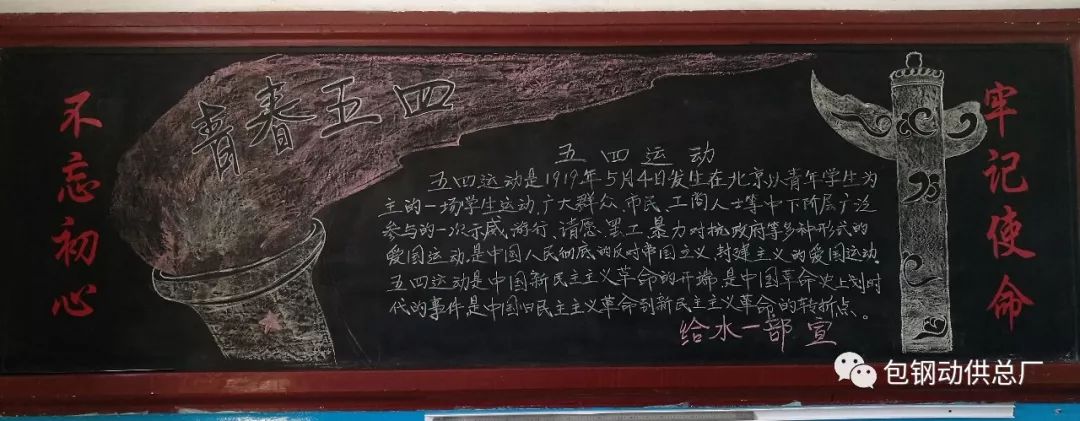 不忘初心
青春五四
五四运动
五四运动是1919年5月4日发生在北京以青年学生为
主的一场学生运动,广大群众、市民、工商人士等中下阶层广泛
参与的一次示威、游行、请愿、罢工、暴力对抗政府等多种形式的
爱国运动,是中国人民彻底的反对帝国主义、封建主义的爱国运动。
五四运动是中国新民主主义革命的开端,是中国革命史上划时
代的事件,是中国旧民主主义革命到新民主主义革命的转折点。
给水一部 宣
牢记使命
包钢动供总厂